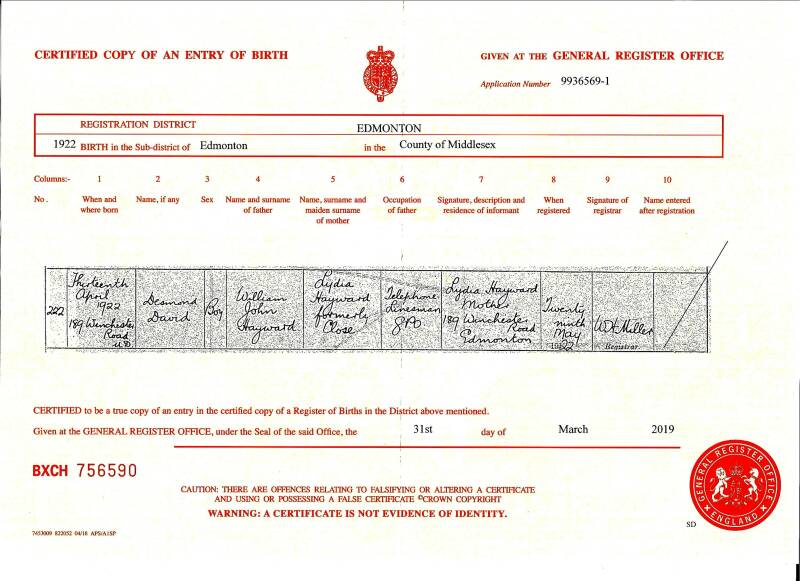 CERTIFIED COPY OF AN ENTRY OF BIRTH
GIVEN AT THE GENERAL REGISTER OFFICE
Application Number 9936569-1
REGISTRATION DISTRICT EDMONTON
1922 BIRTH in the Sub-district of Edmonton in the County of Middlesex
Columns:- 1 2 3 4 5 6 7 8 9 10
No. When and where born
Name, if any
Sex
Name and surname of father
Name, surname and maiden surname of mother
Occupation of father
Signature, description and residence of informant
When registered
Signature of registrar
Name entered after registration
222
Thirteenth
April
1922
189 Winchester
Road
U.D
Desmond
David
Boy
William
John
Hayward
Lydia
Hayward
formerly
Close
Telephone
Linesman
Lydia Hayward
Mother
189 Winchester
Road
Edmonton
Twenty
ninth
May
1922
W H Miller
Registrar
CERTIFIED to be a true copy of an entry in the certified copy of a Register of Births in the District above mentioned.
Given at the GENERAL REGISTER OFFICE, under the Seal of the said Office, the 31st day of March 2019
BXCH 756590
CAUTION: THERE ARE OFFENCES RELATING TO FALSIFYING OR ALTERING A CERTIFICATE
AND USING OR POSSESSING A FALSE CERTIFICATE ©CROWN COPYRIGHT
WARNING: A CERTIFICATE IS NOT EVIDENCE OF IDENTITY.
GENERAL REGISTER OFFICE
ENGLAND
SD
7453009 822052 04/18 APS/A1SP